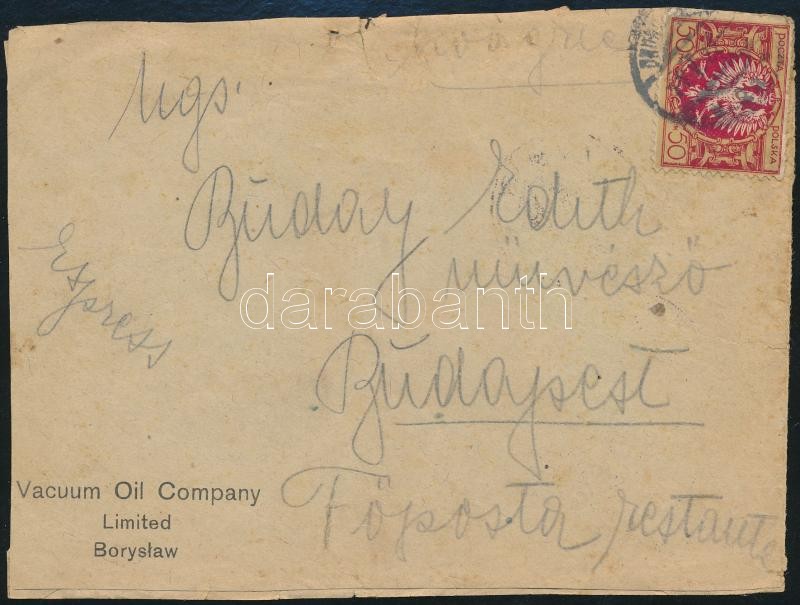 50
POCZTA
POLSKA
50
Ngs.
Buday Edith
művésznő
Express
Budapest
Főposta restante
Vacuum Oil Company
Limited
Borysław
darabanth